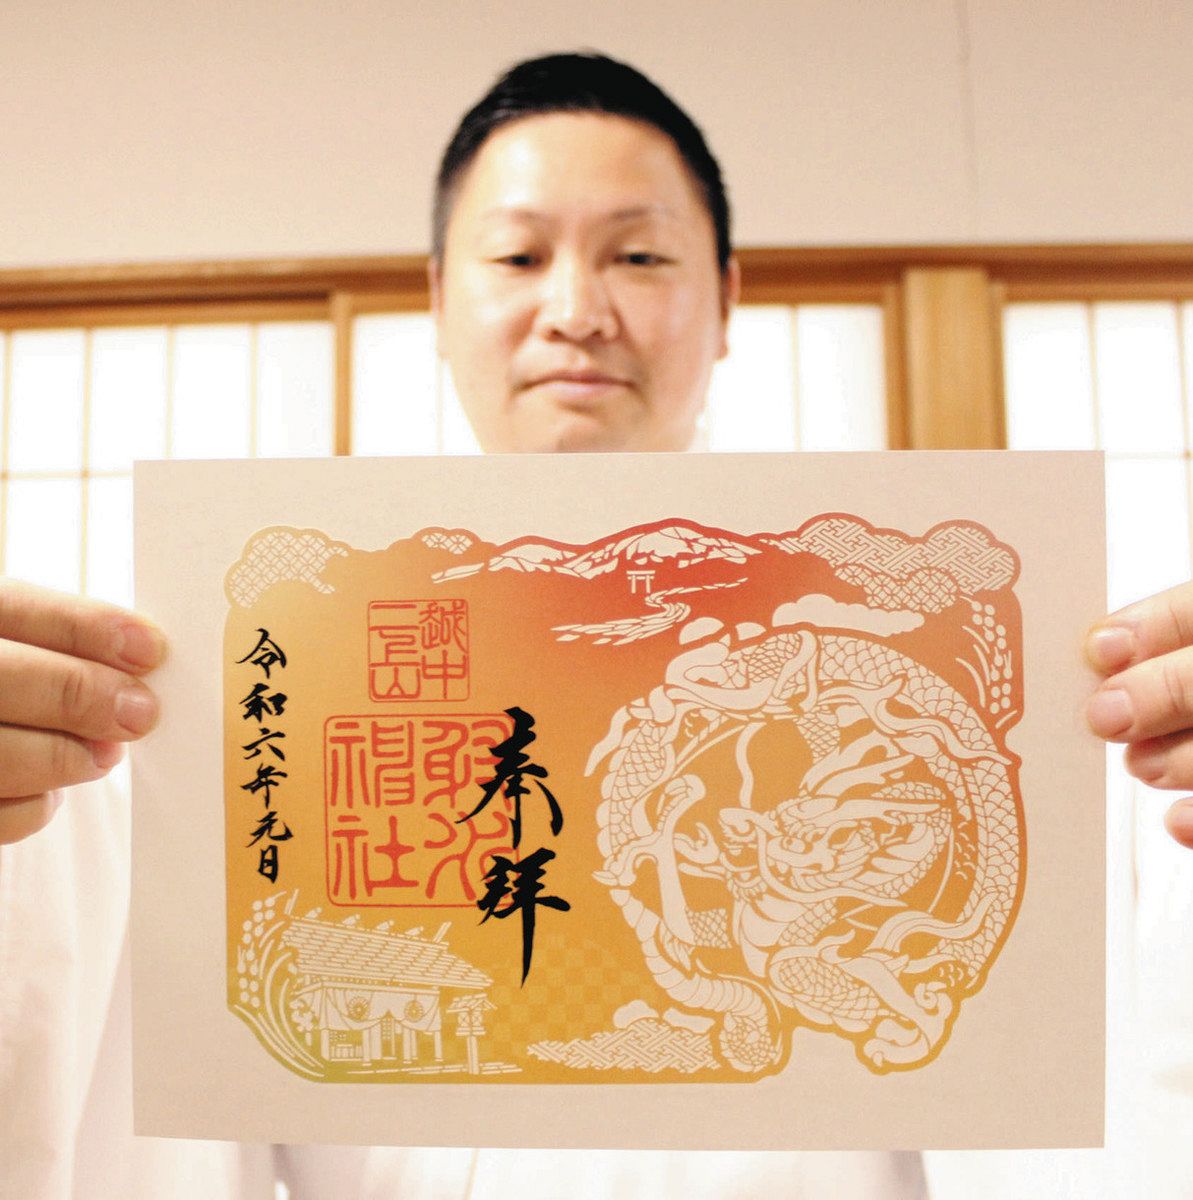 奉拝
越中
二上山
射水
神社
令和六年元日